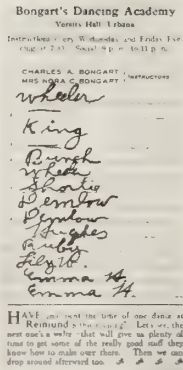 Bongart's Dancing Academy
Versity Hall Urbana
Instructions every Wednesday and Friday Eve
Social 9 p.m. to 11 p.m.
CHARLES A. BONGART
MRS NORA C. BONGART
INSTRUCTORS
Wheeler
King
Burgh
Wheeler
Shortie
Demlow
Demlow
Hughes
Ruby
Lily W.
Emma H.
Emma H.
HAVE you spent the time of one dance at
Reimund's Let's see, the
next one's a waltz that will give us plenty of
time to get some of the really good stuff they
know how to make over there. Then we can
drop around afterward too.